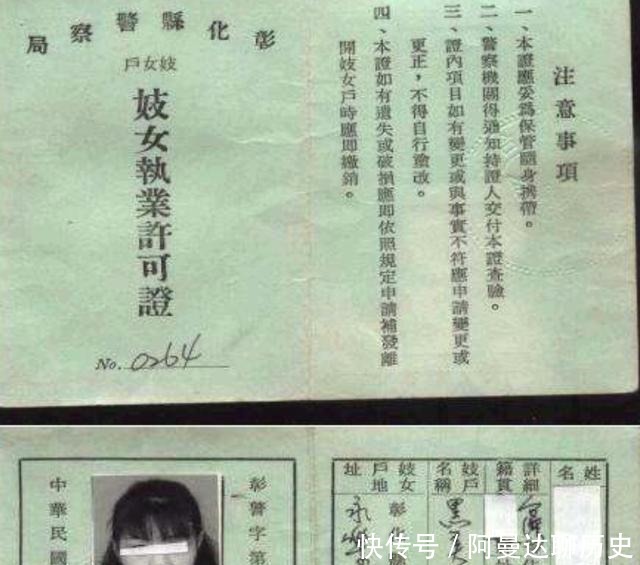 彰化縣警察局
妓女戶
妓女執業許可證
No. 0264
注意事項
一、本證應妥為保管隨身携帶。
二、警察機關得通知持證人交付本證查驗。
三、證內項目如有變更或與事實不符應申請變更或
更正，不得自行塗改。
四、本證如有遺失或破損應即依照規定申請補發離
開妓女戶時應即繳銷。
姓名
詳細籍貫
妓戶名稱
黑
妓女戶地址
彰化
永
彰警字第
中華民國
快传号/阿曼达聊历史